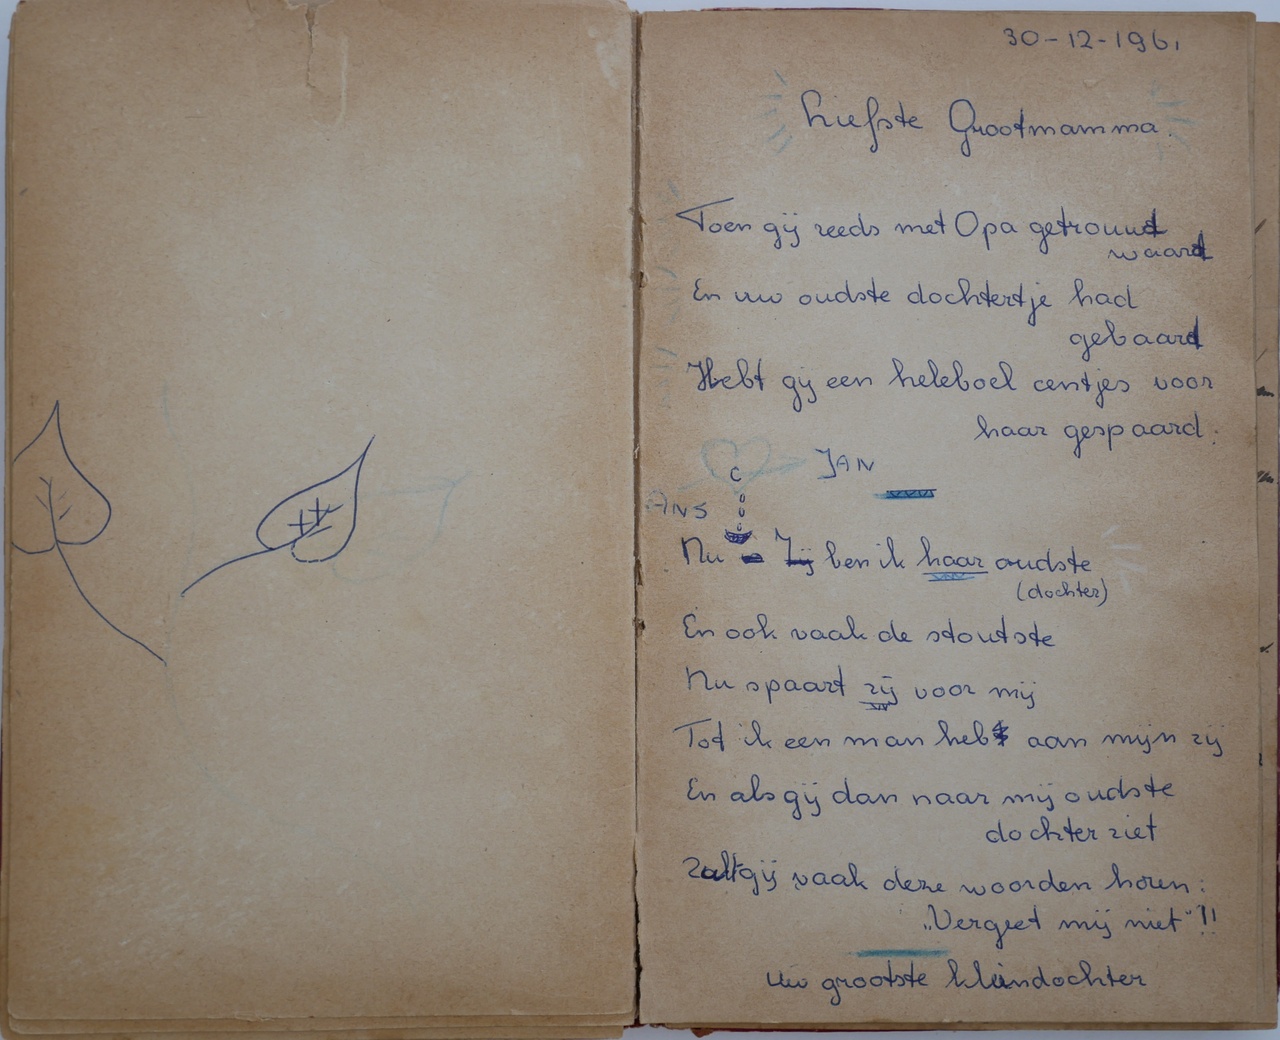 30-12-1961
Liefste Grootmamma.
Toen gij reeds met Opa getrouwd
waard
En uw oudste dochtertje had
gebaard
Hebt gij een heleboel centjes voor
haar gespaard.
JAN
ANS
Nu Zij ben ik haar oudste
(dochter)
En ook vaak de stoutste
Nu spaart zij voor mij
Tot ik een man heb aan mijn zij
En als gij dan naar mij oudste
dochter ziet
Zult gij vaak deze woorden horen:
„Vergeet mij niet"!!
Uw grootste kleindochter